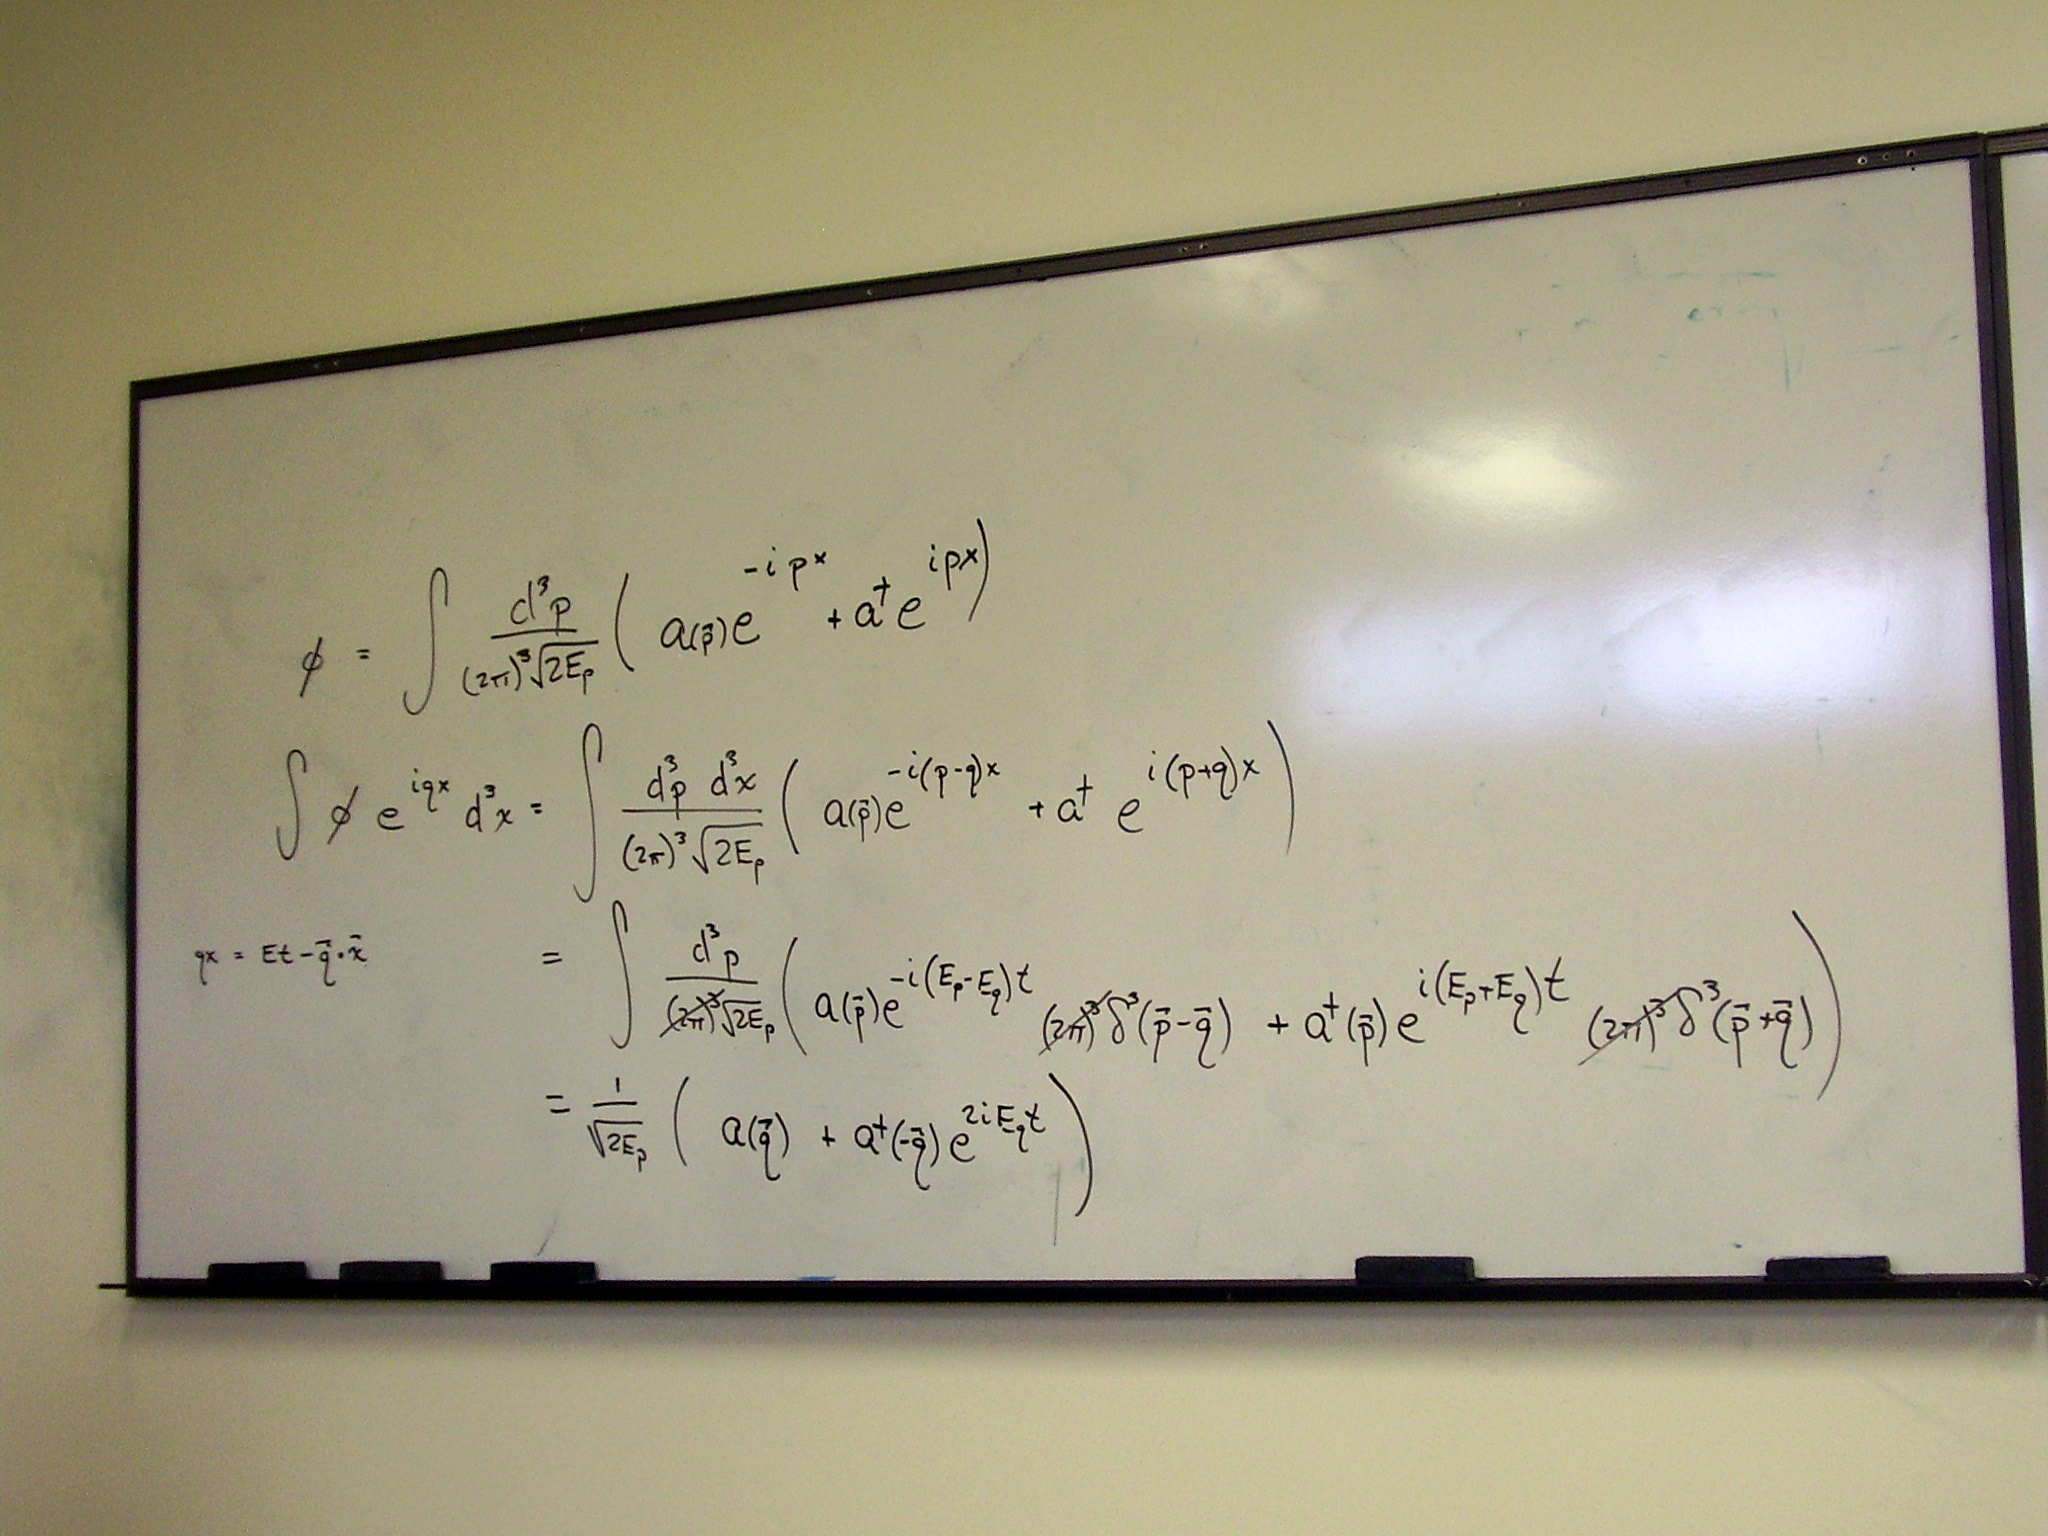 ϕ = ∫ d³p / ((2π)³√2E_p) ( a(p⃗)e^{-ipx} + a†e^{ipx} )
∫ ϕ e^{iqx} d³x = ∫ d³p d³x / ((2π)³√2E_p) ( a(p⃗)e^{-i(p-q)x} + a† e^{i(p+q)x} )
qx = Et - q⃗·x⃗ = ∫ d³p / ((2π)³√2E_p) ( a(p⃗)e^{-i(E_p-E_q)t} (2π)³δ³(p⃗-q⃗) + a†(p⃗)e^{i(E_p+E_q)t} (2π)³δ³(p⃗+q⃗) )
= 1/√2E_p ( a(q⃗) + a†(-q⃗)e^{2iE_qt} )